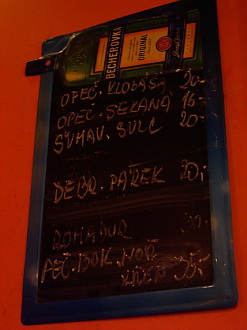 BECHEROVKA
ORIGINAL
OPEČ. KLOBÁSA 20-
OPEČ. SEKANÁ 16-
ŠUMAV. SULC 20-
DEBR. PÁREK 20,-
ROMADUR
PEČ. BOK, NOŽ
35,-